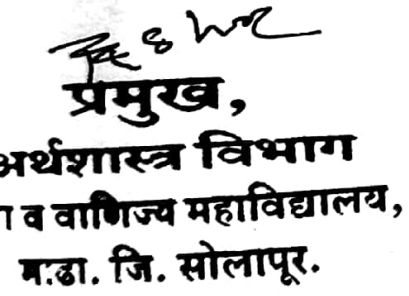 प्रमुख,
अर्थशास्त्र विभाग
व वाणिज्य महाविद्यालय,
जि. सोलापूर.